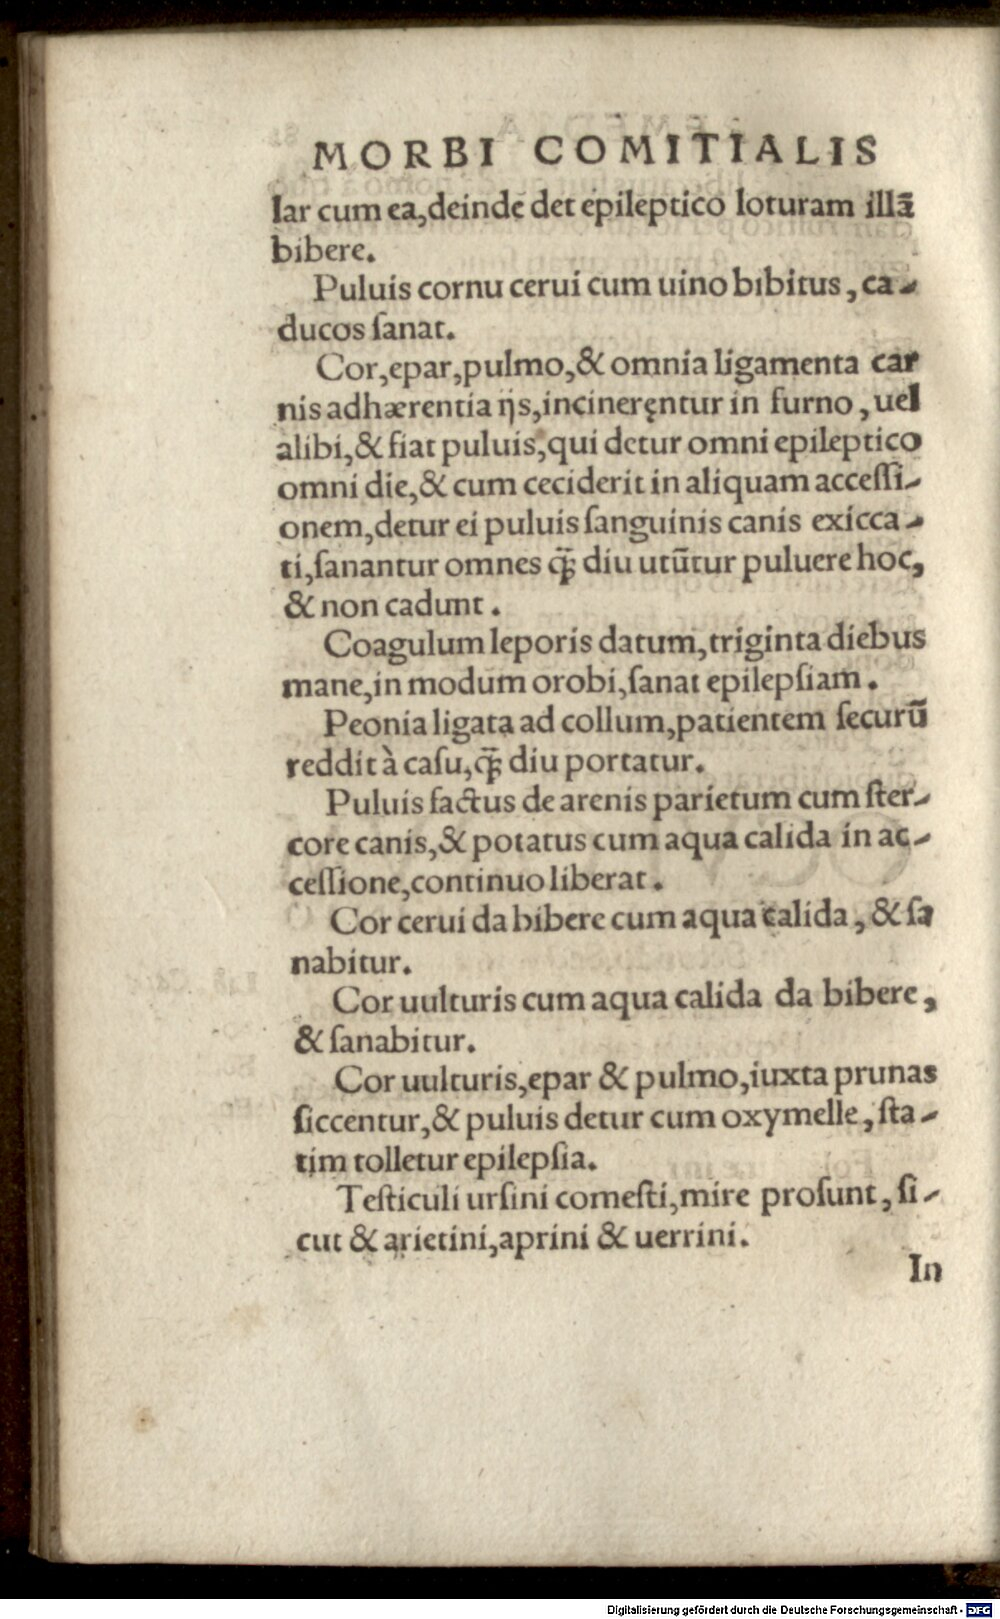 MORBI COMITIALIS
lar cum ea,deinde det epileptico loturam illā
bibere.
Puluis cornu cerui cum uino bibitus, ca-
ducos ſanat.
Cor,epar,pulmo,& omnia ligamenta car
nis adhærentia ijs,incineręntur in furno, uel
alibi,& fiat puluis,qui detur omni epileptico
omni die,& cum ceciderit in aliquam acceſſi-
onem,detur ei puluis ſanguinis canis exicca-
ti,ſanantur omnes q̄ꝫ diu utūtur puluere hoc,
& non cadunt.
Coagulum leporis datum,triginta diebus
mane,in modum orobi,ſanat epilepſiam.
Peonia ligata ad collum,patientem ſecurū
reddit à caſu,q̄ꝫ diu portatur.
Puluis factus de arenis parietum cum ſter-
core canis,& potatus cum aqua calida in ac-
ceſſione,continuo liberat.
Cor cerui da bibere cum aqua calida, & ſa
nabitur.
Cor uulturis cum aqua calida da bibere,
& ſanabitur.
Cor uulturis,epar & pulmo,iuxta prunas
ſiccentur,& puluis detur cum oxymelle, ſta-
tim tolletur epilepſia.
Teſticuli urſini comeſti,mire proſunt, ſi-
cut & arietini,aprini & uerrini.
In
Digitalisierung gefördert durch die Deutsche Forschungsgemeinschaft - DFG